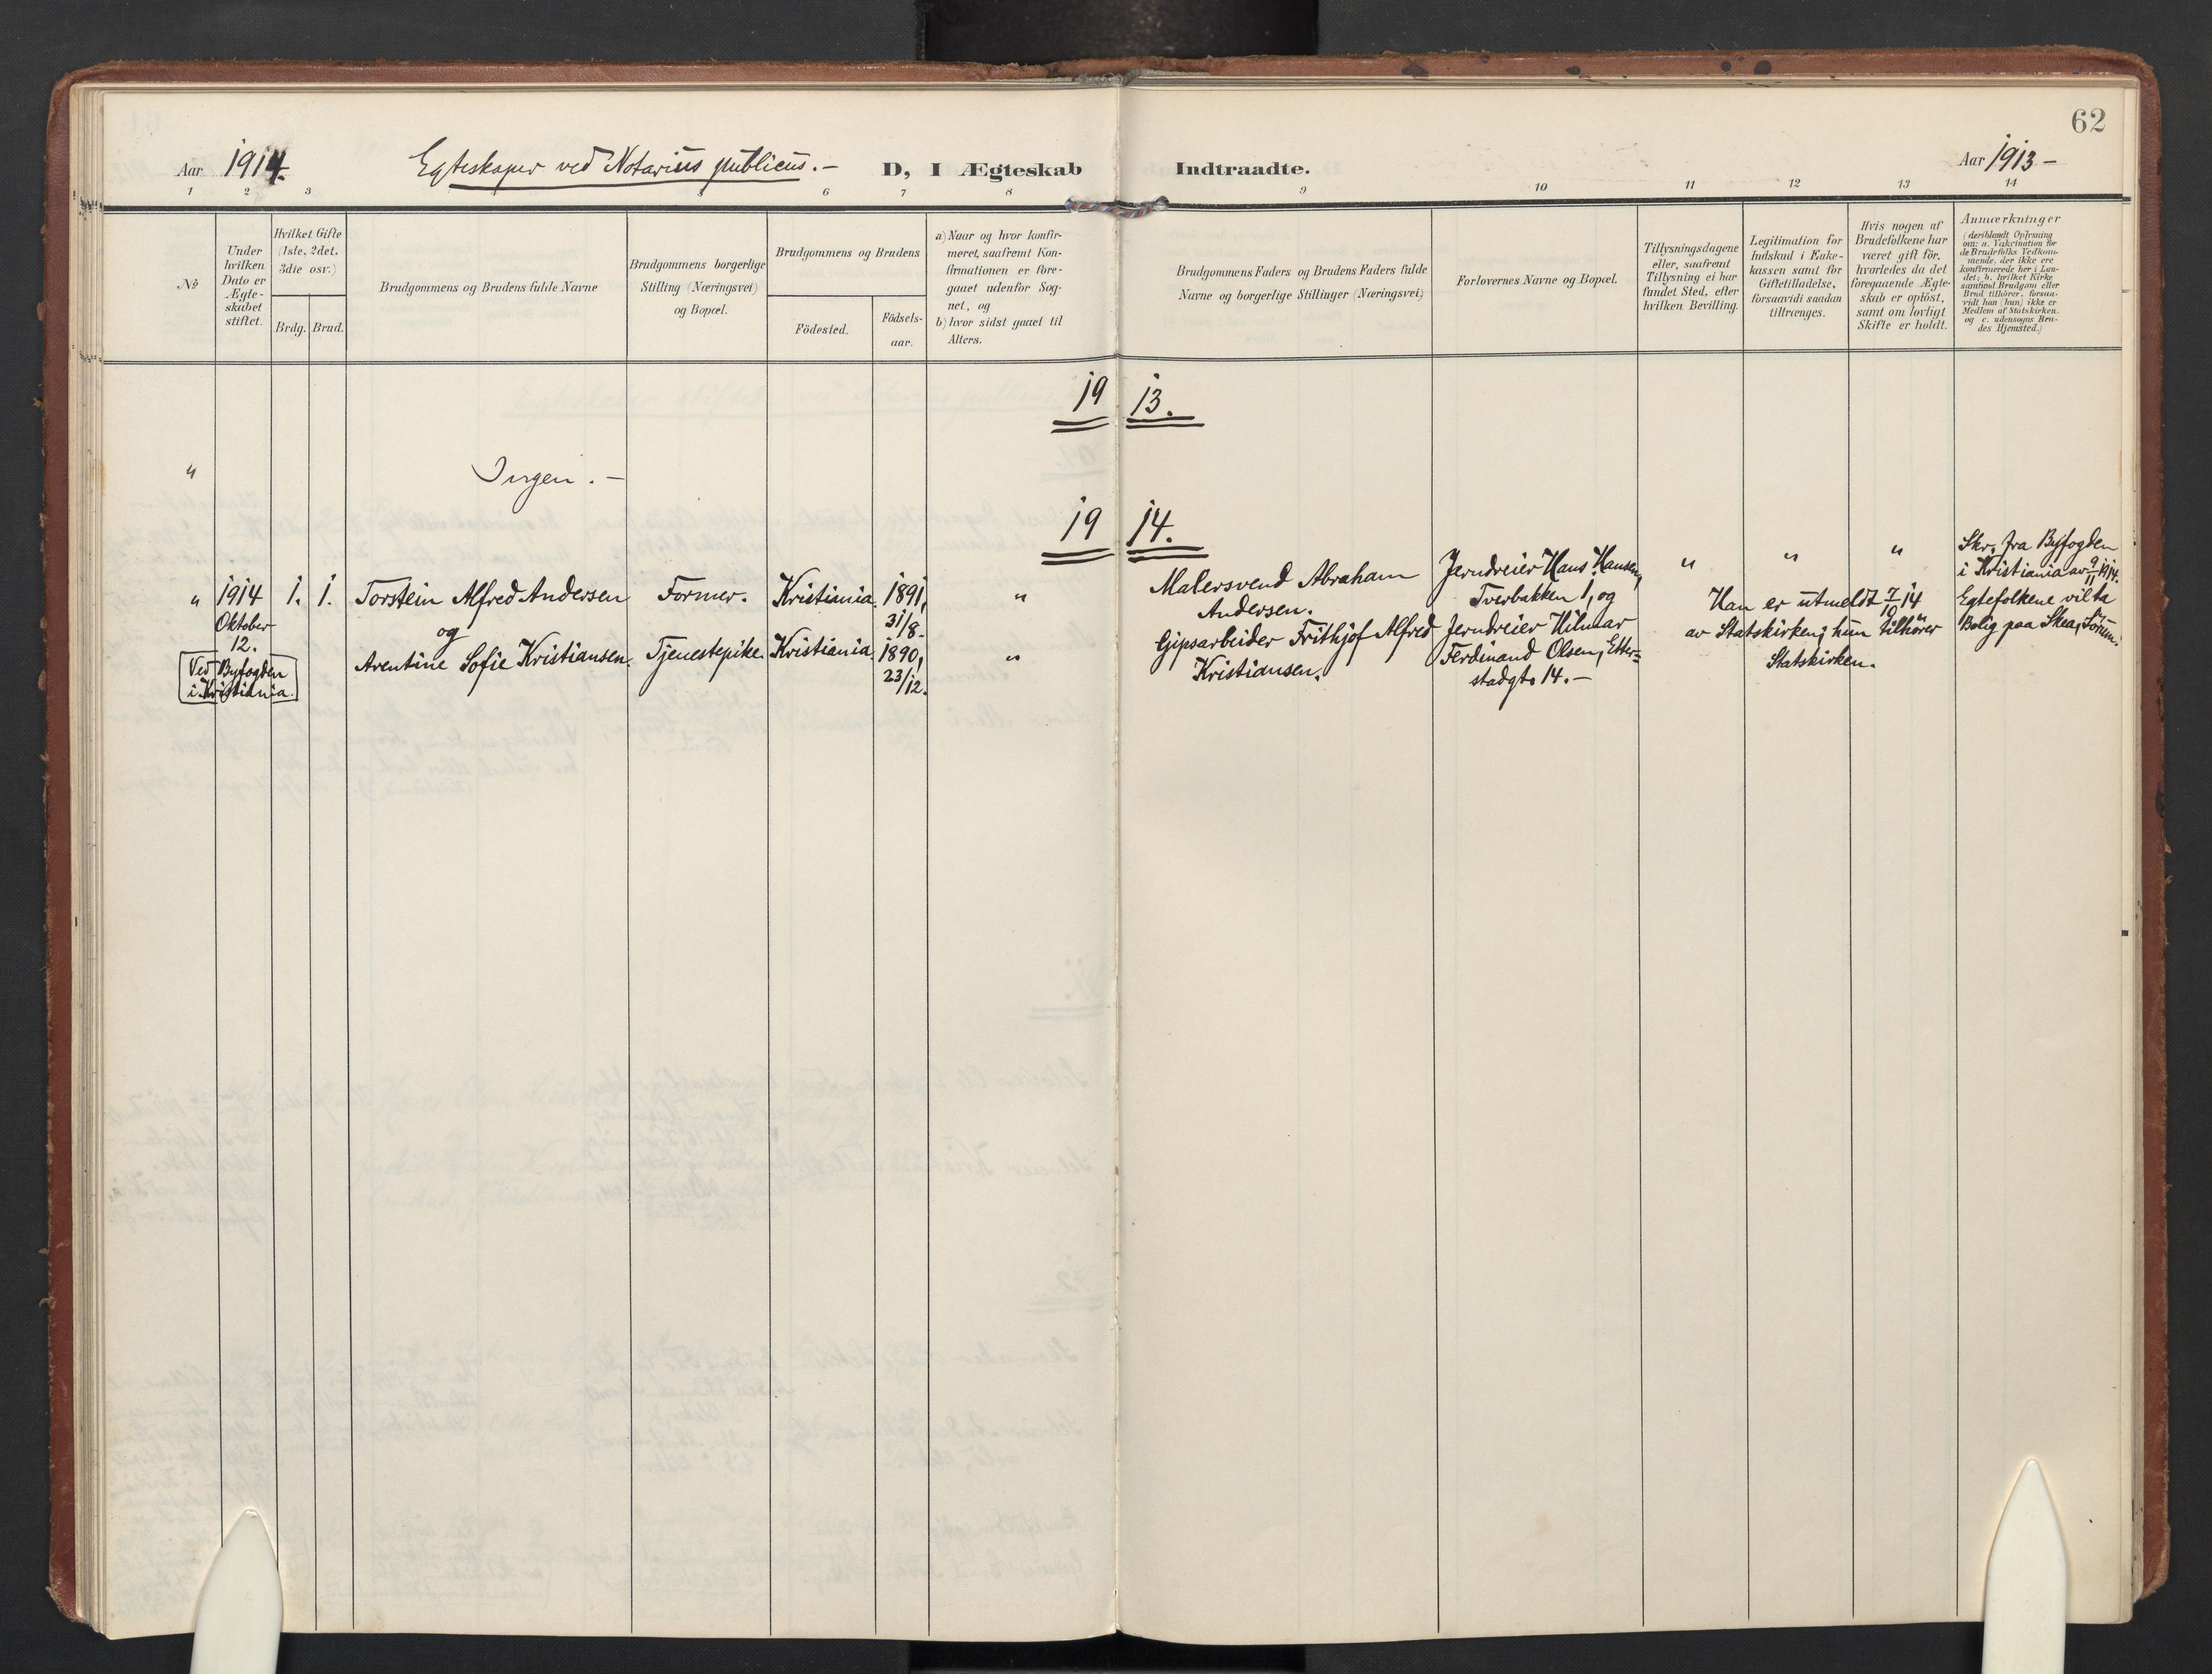 62
Aar 1914.
Egteskaper ved Notarius publicus. —
D, I Ægteskab
Indtraadte.
Aar 1913 —
1 2 3 5 6 7 8 9 10 11 12 13 14
No
Under
hvilken
Dato er
Ægte-
skabet
stiftet.
Hvilket Gifte
(1ste, 2det,
3die osv.)
Brdg. Brud.
Brudgommens og Brudens fulde Navne
Brudgommens borgerlige
Stilling (Næringsvei)
og Bopæl.
Brudgommens og Brudens
Födested.
Födsels-
aar.
a) Naar og hvor konfir-
meret, saafremt Kon-
firmationen er fore-
gaaet udenfor Sog-
net, og
b) hvor sidst gaaet til
Alters.
Brudgommens Faders og Brudens Faders fulde
Navne og borgerlige Stillinger (Næringsvei)
Forlovernes Navne og Bopæl.
Tillysningsdagene
eller, saafremt
Tillysning ei har
fundet Sted, efter
hvilken Bevilling.
Legitimation for
Indskud i Enke-
kassen samt for
Giftetilladelse,
forsaavidt saadan
tiltrænges.
Hvis nogen af
Brudefolkene har
været gift för,
hvorledes da det
foregaaende Ægte-
skab er oplöst,
samt om lovligt
Skifte er holdt.
Anmærkninger
(deriblandt Oplysning
om: a. Vakcination for
de Brudefolks Vedkom-
mende, der ikke ere
konfirmerede her i Lan-
det; b. hvilket Kirke
samfund Brudgom eller
Brud tilhörer, forsaa-
vidt han (hun) ikke er
Medlem af Statskirken.
og c. udensogns Bru-
des Hjemsted.)
19 13.
" Ingen. —
19 14.
" 1914
Oktober
12.
Ved Byfogden
i Kristiania.
1. 1.
Torstein Alfred Andersen
og
Arentine Sofie Kristiansen.
Former.
Tjenestepike.
Kristiania.
Kristiania.
1891,
31/8.
1890,
23/12.
"
"
Malersvend Abraham
Andersen.
Gipsarbeider Frithjof Alfred
Kristiansen.
Jerndreier Hans Hansen,
Tverbakken 1, og
Jerndreier Hilmar
Ferdinand Olsen, Etter=
stadgt. 14. —
" " "
Han er utmeldt 7/10 14
av Statskirken; hun tilhører
Statskirken.
Skr. fra Byfogden
i Kristiania av 9/11 1914.
Egtefolkene vil ta
Bolig paa Skea, Sörum.